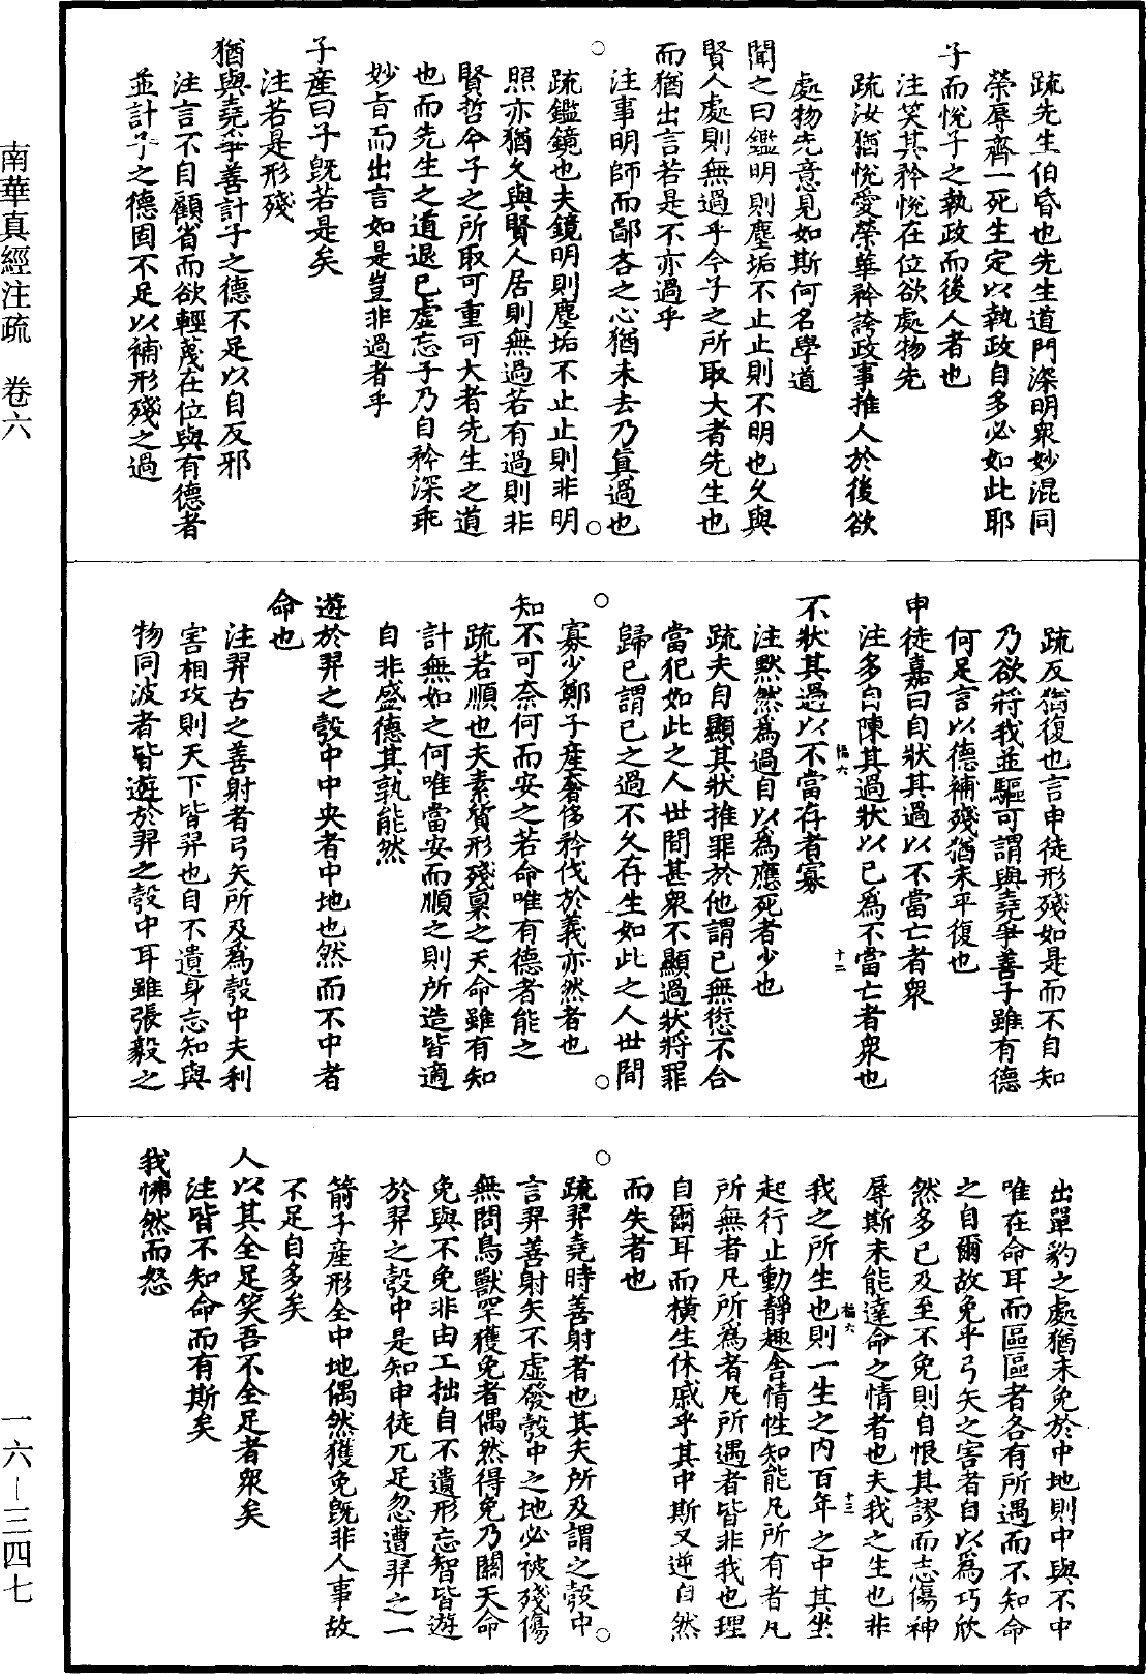 疏先生伯昏也先生道門深明衆妙混同
榮辱齊一死生定以執政自多必如此耶
子而悅子之執政而後人者也
注笑其矜悅在位欲處物先
疏汝猶悅愛榮華矜誇政事推人於後欲
處物先意見如斯何名學道
聞之曰鑑明則塵垢不止止則不明也久與
賢人處則無過乎今子之所取大者先生也
而猶出言若是不亦過乎
注事明師而鄙吝之心猶未去乃真過也
疏鑑鏡也夫鏡明則塵垢不止止則非明
照亦猶久與賢人居則無過若有過則非
賢哲今子之所取可重可大者先生之道
也而先生之道退已虛忘子乃自矜深乖
妙旨而出言如是豈非過者乎
子產曰子旣若是矣
注若是形殘
猶與堯爭善計子之德不足以自反邪
注言不自顧省而欲輕蔑在位與有德者
並計子之德固不足以補形殘之過
疏反猶復也言申徒形殘如是而不自知
乃欲將我並驅可謂與堯爭善子雖有德
何足言以德補殘猶未平復也
申徒嘉曰自狀其過以不當亡者衆
注多自陳其過狀以已為不當亡者衆也
福六
十二
不狀其過以不當存者寡
注黙然為過自以為應死者少也
疏夫自顯其狀推罪於他謂已無愆不合
當犯如此之人世間甚衆不顯過狀將罪
歸已謂已之過不久存生如此之人世間
寡少鄭子產奢侈矜伐於義亦然者也
知不可奈何而安之若命唯有德者能之
疏若順也夫素質形殘稟之天命雖有知
計無如之何唯當安而順之則所造皆適
自非盛德其孰能然
遊於羿之彀中中央者中地也然而不中者
命也
注羿古之善射者弓矢所及為彀中夫利
害相攻則天下皆羿也自不遺身忘知與
物同波者皆遊於羿之彀中耳雖張毅之
出單豹之處猶未免於中地則中與不中
唯在命耳而區區者各有所遇而不知命
之自爾故免乎弓矢之害者自以為巧欣
然多已及至不免則自恨其謬而志傷神
辱斯未能達命之情者也夫我之生也非
福六
十三
我之所生也則一生之内百年之中其坐
起行止動靜趣舍情性知能凡所有者凡
所無者凡所為者凡所遇者皆非我也理
自爾耳而橫生休戚乎其中斯又逆自然
而失者也
疏羿堯時善射者也其矢所及謂之彀中
言羿善射矢不虛發彀中之地必被殘傷
無問鳥獸罕獲免者偶然得免乃關天命
免與不免非由工拙自不遺形忘智皆遊
於羿之彀中是知申徒兀足忽遭羿之一
箭子產形全中地偶然獲免旣非人事故
不足自多矣
人以其全足笑吾不全足者衆矣
注皆不知命而有斯矣
我怫然而怒
南華真經注疏　卷六
一六－三四七